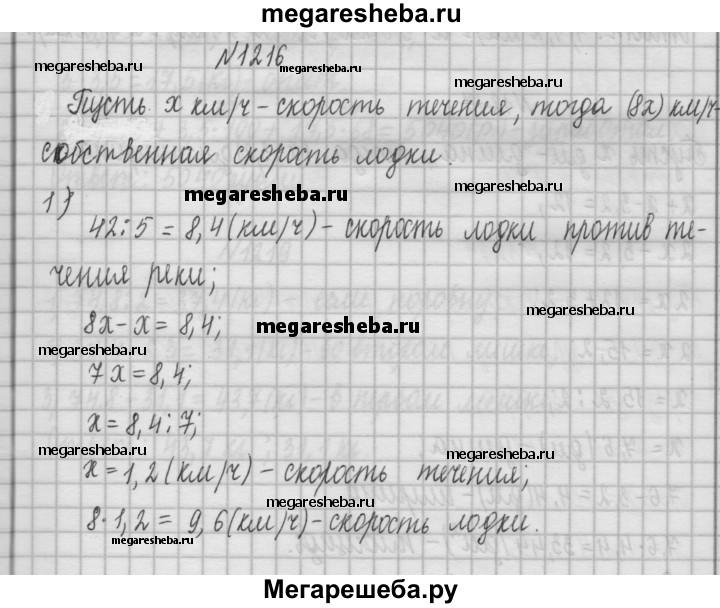 megaresheba.ru
N1216
megaresheba.ru megaresheba.ru megaresheba.ru
Пусть x км/ч – скорость течения, тогда (8x) км/ч –
собственная скорость лодки.
megaresheba.ru
1)
42:5 = 8,4 (км/ч) – скорость лодки против те-
чения реки;
megaresheba.ru
8x – x = 8,4; megaresheba.ru
megaresheba.ru
7x = 8,4;
x = 8,4 : 7;
megaresheba.ru megaresheba.ru
x = 1,2 (км/ч) – скорость течения;
megaresheba.ru
8·1,2 = 9,6 (км/ч) – скорость лодки.
megaresheba.ru
Мегарешеба.ру